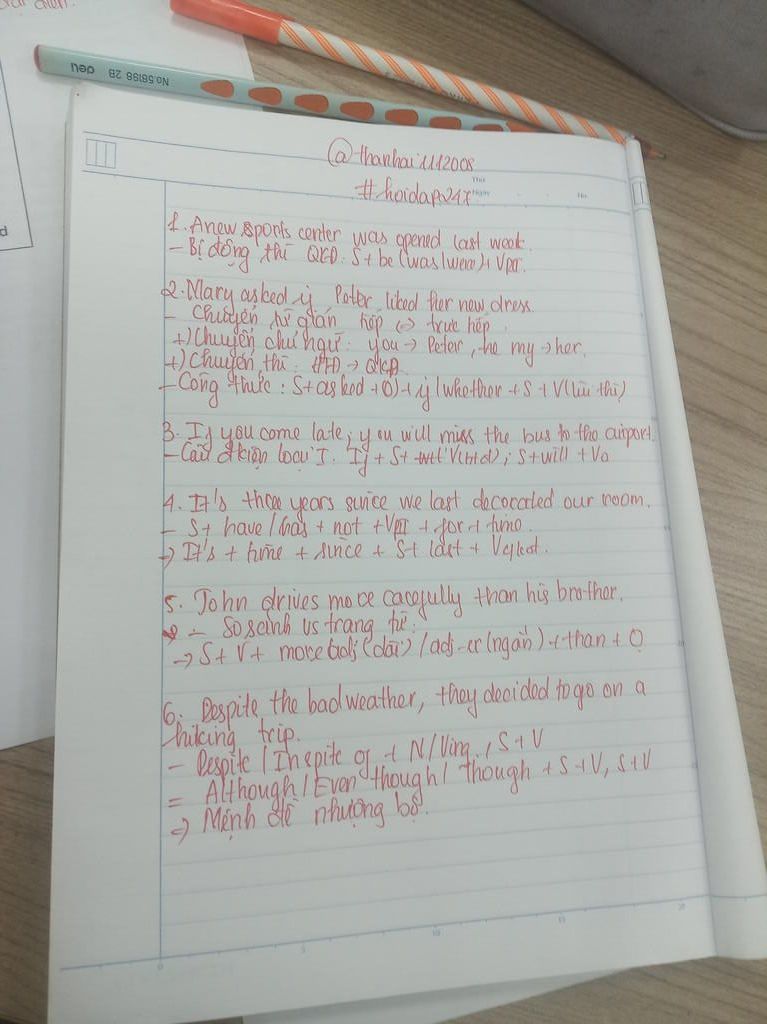 @thanhhai112008
#hoidap247
1. A new sports center was opened last week.
- Bị động thì QKĐ: S + be (was/were) + VPII.
2. Mary asked if Peter liked her new dress.
- Chuyển từ gián tiếp <-> trực tiếp.
+) Chuyển chủ ngữ: you -> Peter, he my -> her.
+) Chuyển thì: HTĐ -> QKĐ
- Công thức: S + asked + O + if/whether + S + V (lùi thì)
3. If you come late, you will miss the bus to the airport.
- Câu đkiện loại I: If + S + V(htđ), S + will + Vo
4. It's three years since we last decorated our room.
- S + have/has + not + VPII + for + time.
-> It's + time + since + S + last + Vqkđ.
5. John drives more carefully than his brother.
- So sánh vs trạng từ.
-> S + V + more adj (dài) / adj-er (ngắn) + than + O
6. Despite the bad weather, they decided to go on a
hiking trip.
- Despite / Inspite of + N/Ving, S + V
= Although / Even though / though + S + V, S + V
=> Mệnh đề nhượng bộ.
deli 2B No.58198